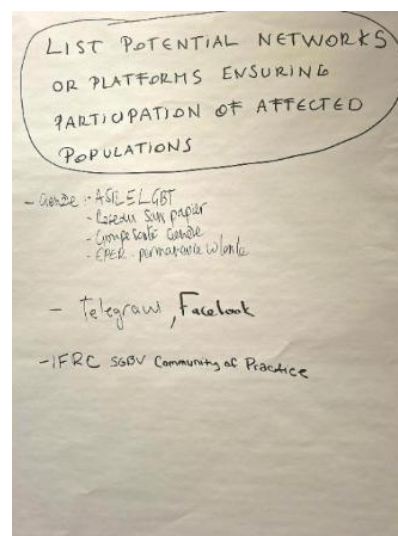 LIST POTENTIAL NETWORKS
OR PLATFORMS ENSURING
PARTICIPATION OF AFFECTED
POPULATIONS
- ASILE LGBT
- Réseau Sans papier
- Genre
- EPER - permanence
- Telegram, Facebook
- IFRC SGBV Community of Practice